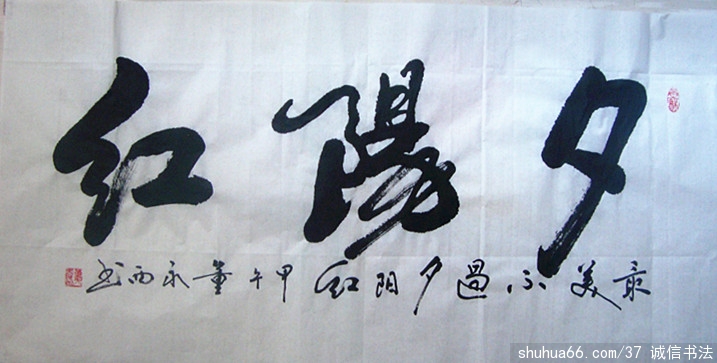 夕陽紅
最美不過夕阳红甲午董永西书
shuhua66.com/37 诚信书法